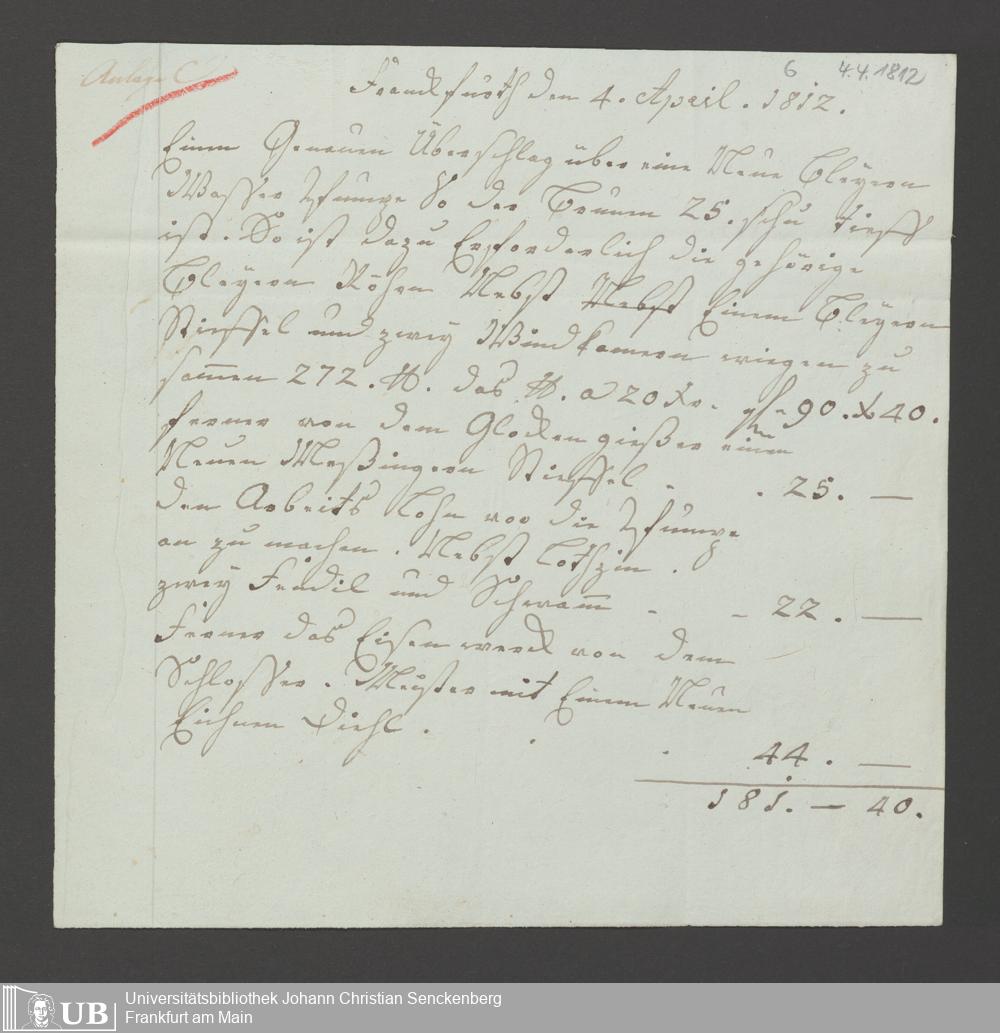 Anlage C
6 4.4.1812
Franckfurth den 4. April. 1812.
Einen Genauen Überschlag über eine Neue Bleÿern
Wasser Pfumpe So der Brunen 25. schu tieff
ist. So ist dazu Erforderlich die gehörige
Bleÿern Röhrn Nebst Nebst Einem Bleÿern
Stieffel und zweÿ Windkamern wiegen zu
samen 272. ℔. das ℔. a 20 Xr. f 90. X 40.
ferner von dem Glocken gießer einen
Neuen Meßingern Stieffel - . 25. —
den Arbeits Lohn vor die Pfumpe
an zu machen. Nebst Lothzin.
zweÿ und - - 22. —
Ferner das Eisen werck von dem
Schlosser. Meister mit Einem Neuen
Eichnen Diehl. . . 44. —
181. — 40.
UB
Universitätsbibliothek Johann Christian Senckenberg
Frankfurt am Main